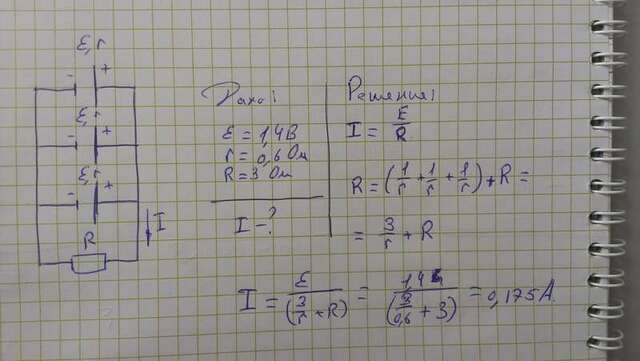 ε, r
- +
ε, r
- +
ε, r
- +
I
R
Дано:
ε = 1,4 В
r = 0,6 Ом
R = 3 Ом
I - ?
Решение:
I = E/R
R = (1/r + 1/r + 1/r) + R =
= 3/r + R
I = ε/(3/r + R) = 1,4/(3/0,6 + 3) = 0,175 А.